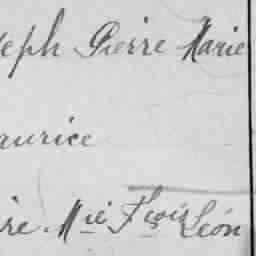 eph Pierre Marie
aurice
re Mie Fçois Léon